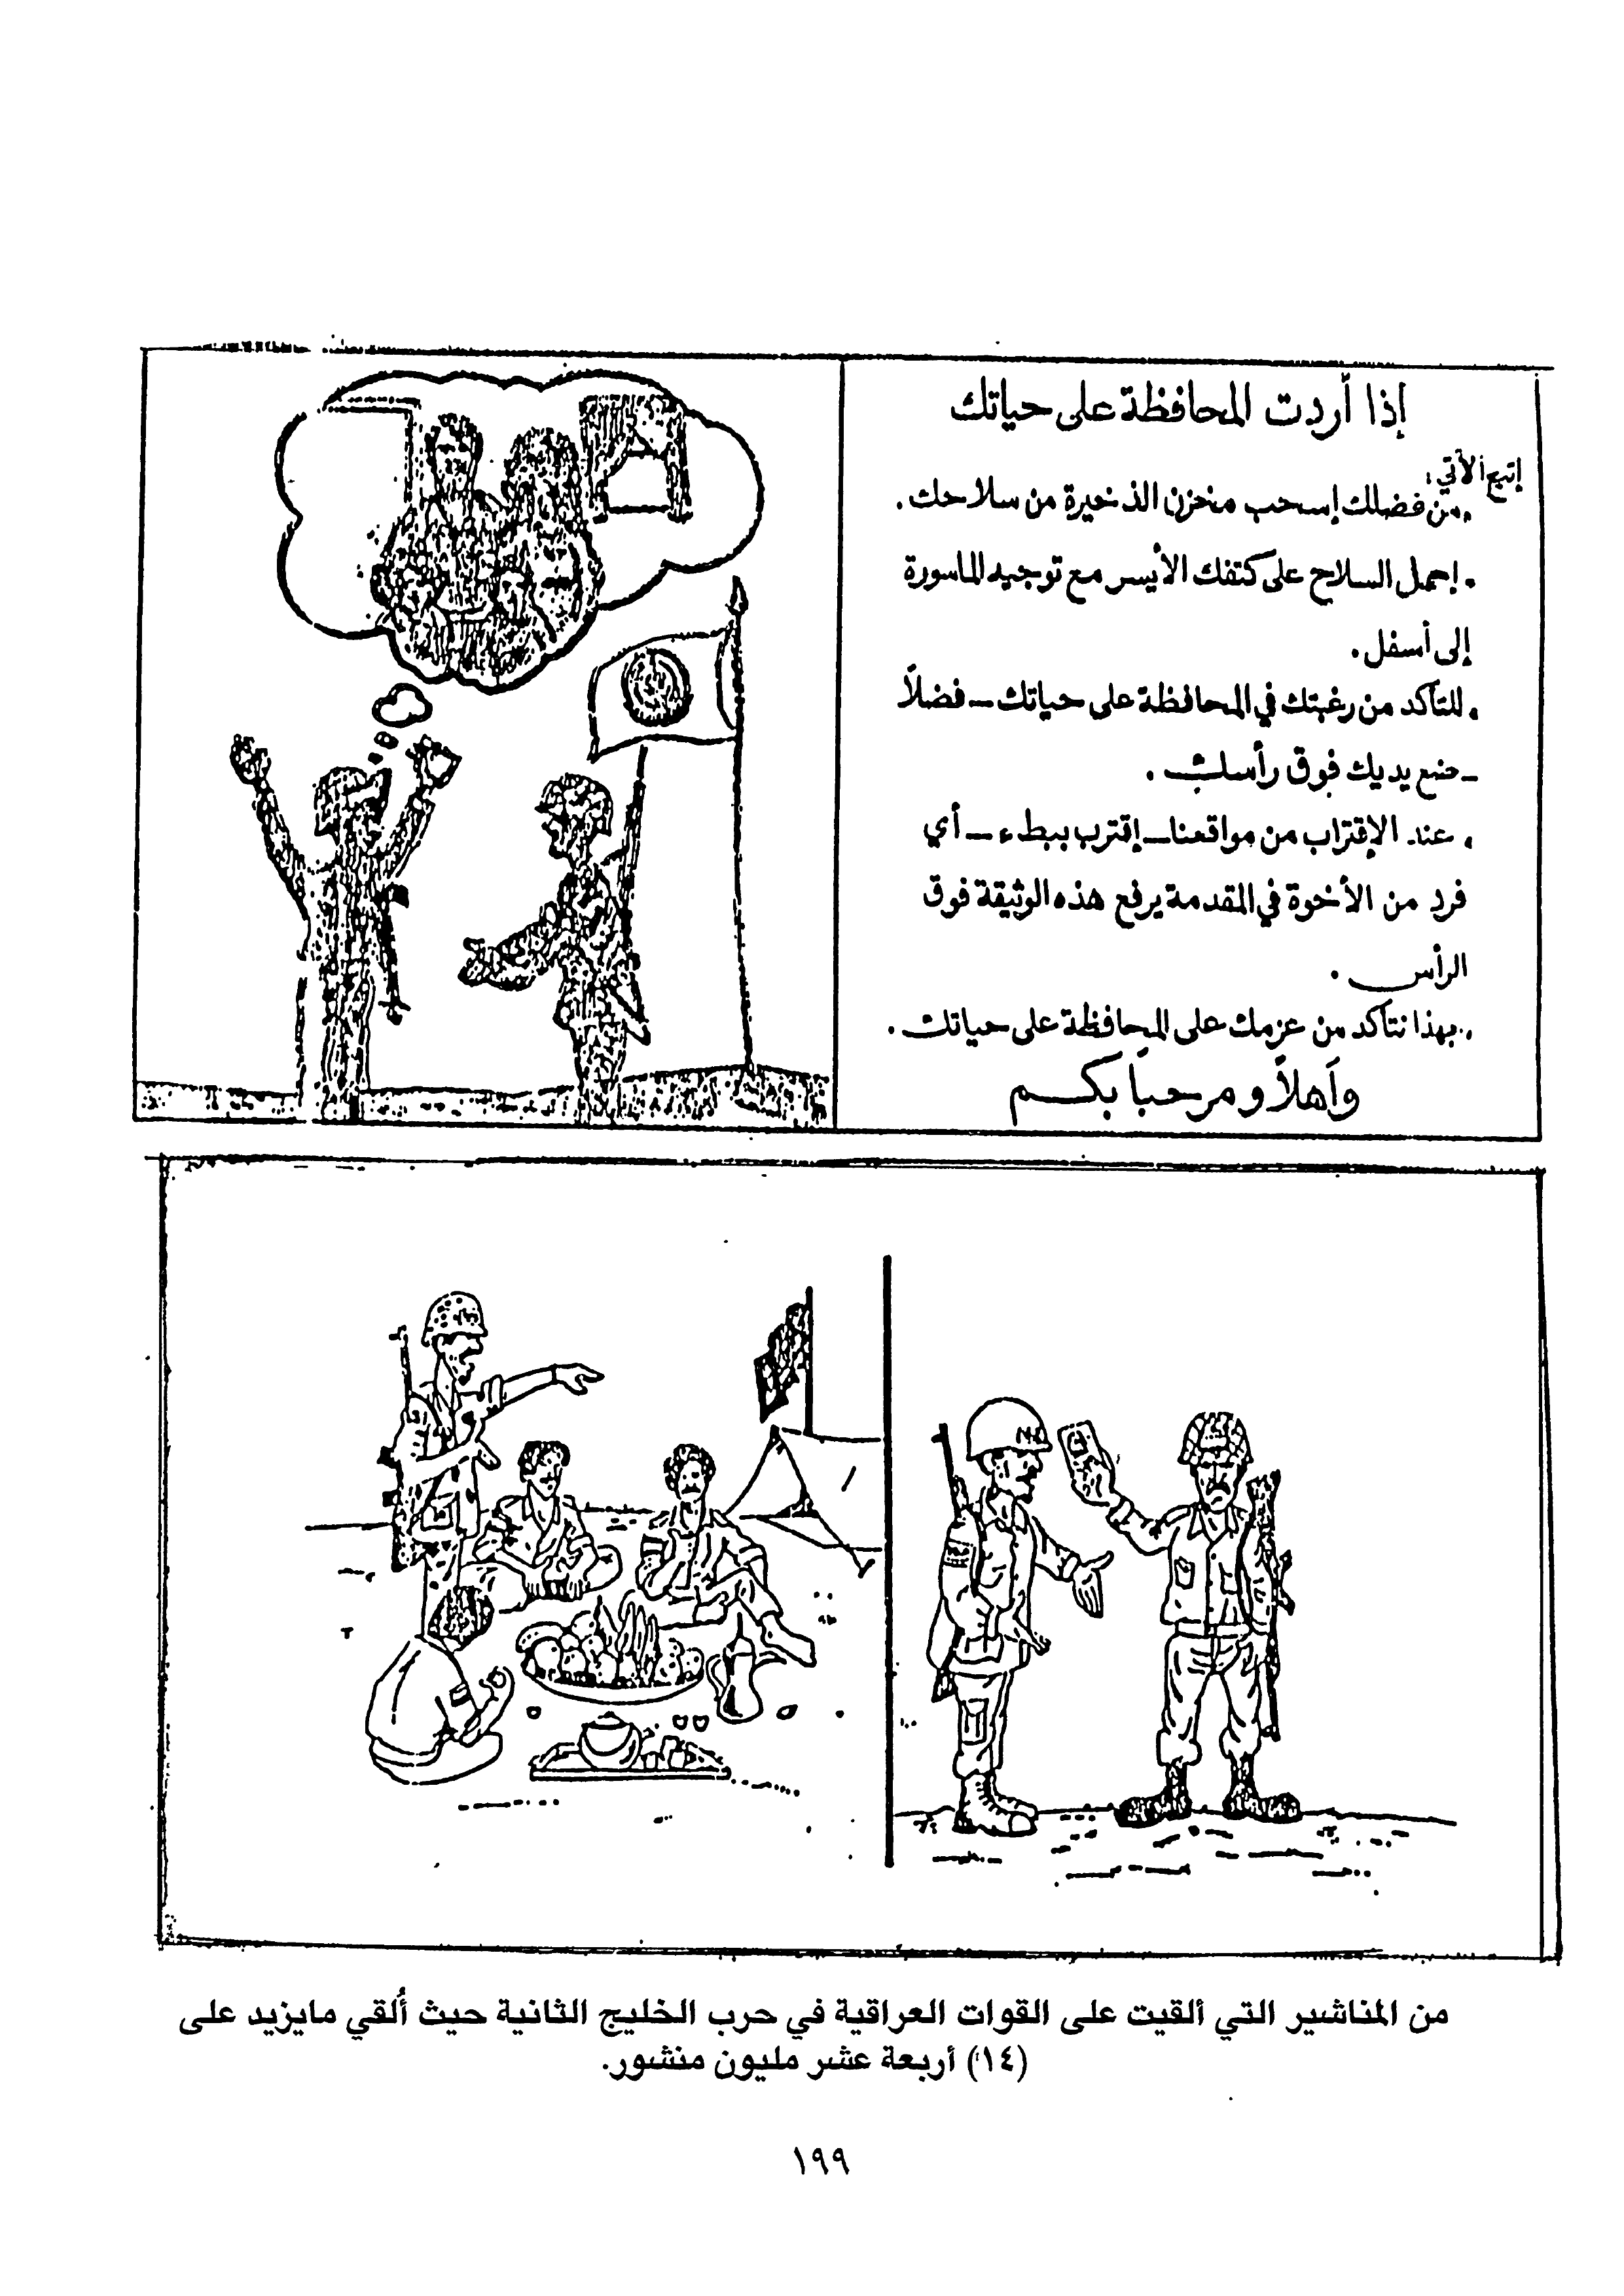 إذا أردت المحافظة على حياتك
إتبع الآتي:
. من فضلك إسحب مخزن الذخيرة من سلاحك.
. إحمل السلاح على كتفك الأيسر مع توجيه الماسورة
إلى أسفل.
. للتأكد من رغبتك في المحافظة على حياتك – فضلاً
– ضع يديك فوق رأسك.
. عند الإقتراب من مواقعنا – إقترب ببطء – أي
فرد من الأخوة في المقدمة يرفع هذه الوثيقة فوق
الرأس.
. بهذا نتأكد من عزمك على المحافظة على حياتك.
وأهلاً ومرحباً بكم
من المناشير التي ألقيت على القوات العراقية في حرب الخليج الثانية حيث أُلقي مايزيد على
(١٤) أربعة عشر مليون منشور.
١٩٩